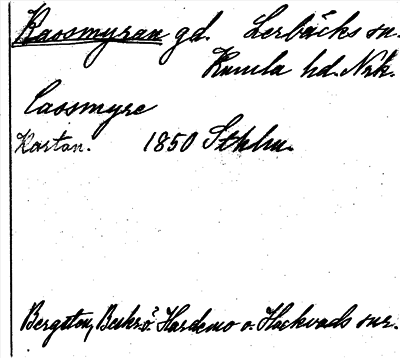 Kassmyran gd. Lerbäcks sn.
Kumla hd. Nrk.
Cassmyre
Kartan. 1850 Sthlm.
Bergsten, Beskr. ö. Hardemo o. Hackvads snr.